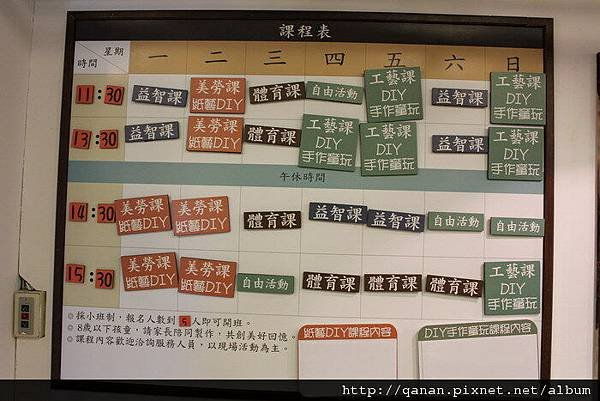 課程表
星期
時間
一 二 三 四 五 六 日
11:30
益智課
美勞課
紙藝DIY
體育課
自由活動
工藝課
DIY
手作童玩
益智課
工藝課
DIY
手作童玩
13:30
益智課
美勞課
紙藝DIY
體育課
工藝課
DIY
手作童玩
工藝課
DIY
手作童玩
益智課
工藝課
DIY
手作童玩
午休時間
14:30
美勞課
紙藝DIY
美勞課
紙藝DIY
體育課
益智課
益智課
自由活動
自由活動
15:30
美勞課
紙藝DIY
美勞課
紙藝DIY
自由活動
體育課
體育課
體育課
工藝課
DIY
手作童玩
採小班制，報名人數到 5 人即可開班。
8歲以下孩童，請家長陪同製作，共創美好回憶。
課程內容歡迎洽詢服務人員，以現場活動為主。
紙藝DIY課程內容
DIY手作童玩課程內容
http://qanan.pixnet.net/album